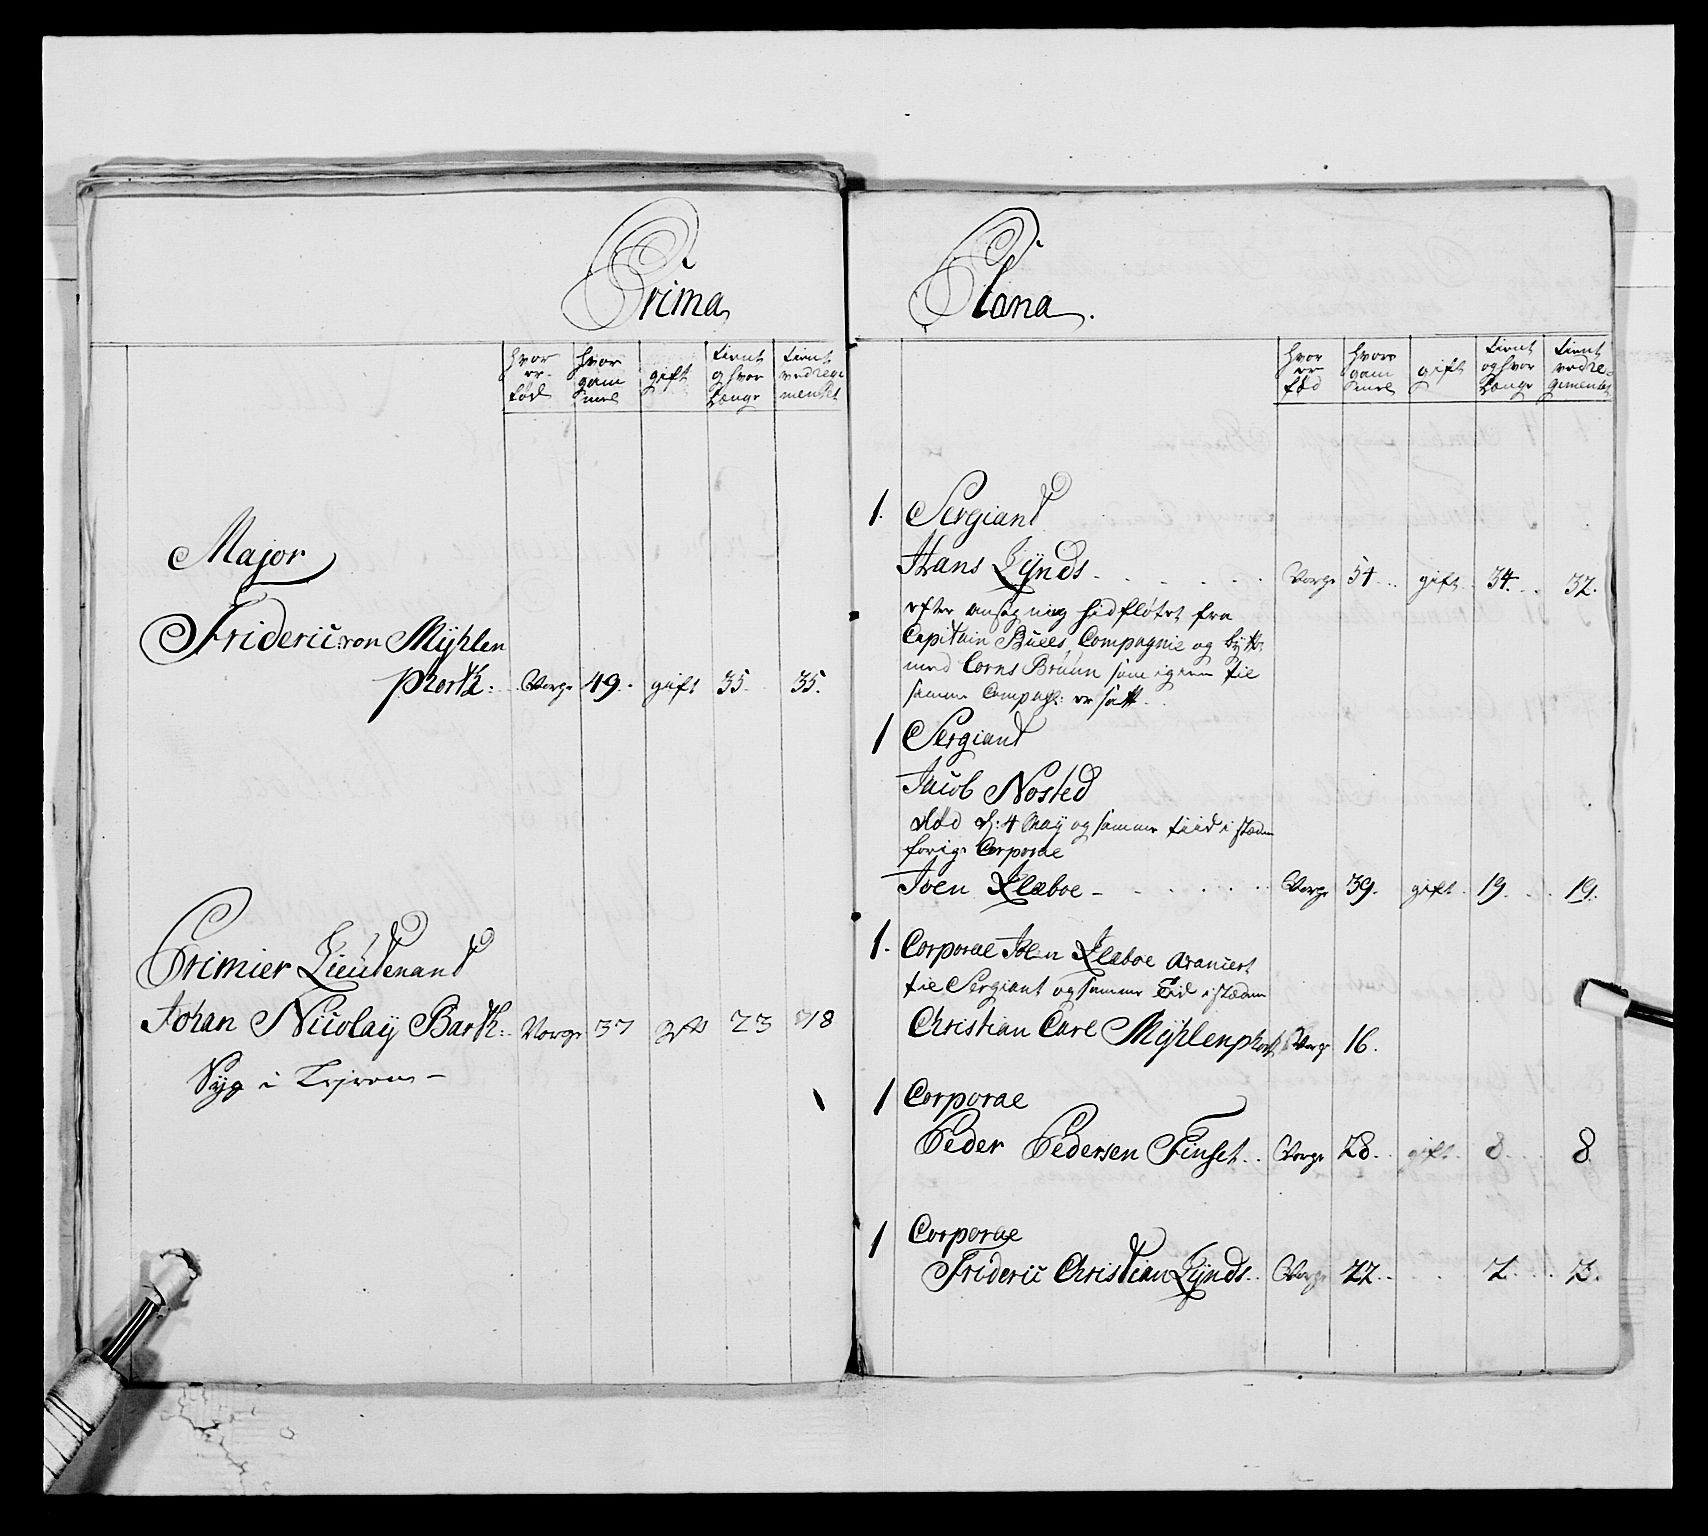 Prima
hvor er fød | hvor gammel | gift | tient og hvor Længe | tient ved Regimentet
Major
Frideric von Mÿhlen
phorth. Norge 49. gift 35. 35.
Primier Lieutenand
Johan Nicolaÿ Barth. Norge 37 gift 23 18
Syg i Lejren
Plana.
hvor er fød | hvor gammel | gift | tient og hvor Længe | tient ved Regimentet
1. Sergiant
Hans Lÿnds. Norge 54 gift 34. 32.
efter ansøgning hidfløtet fra
Capitain Buees Compagnie og bytt
med Corns Bruun som igien til
samme Compag: er satt.
1 Sergiant
Jacob Nosted
død d: 4 Maÿ og samme tiid i stæden
forige Corporal
Joen Klæboe Norge 39. gift 19. 19.
1. Corporal Joen Klæboe avanceret
til Sergiant og samme Tid i stæden
Christian Carl Mÿhlenphort Norge 16.
1 Corporal
Peder Pedersen Finset. Norge 28. gift. 8 8
1 Corporal
Frideric Christian Lÿnds. Norge 22.